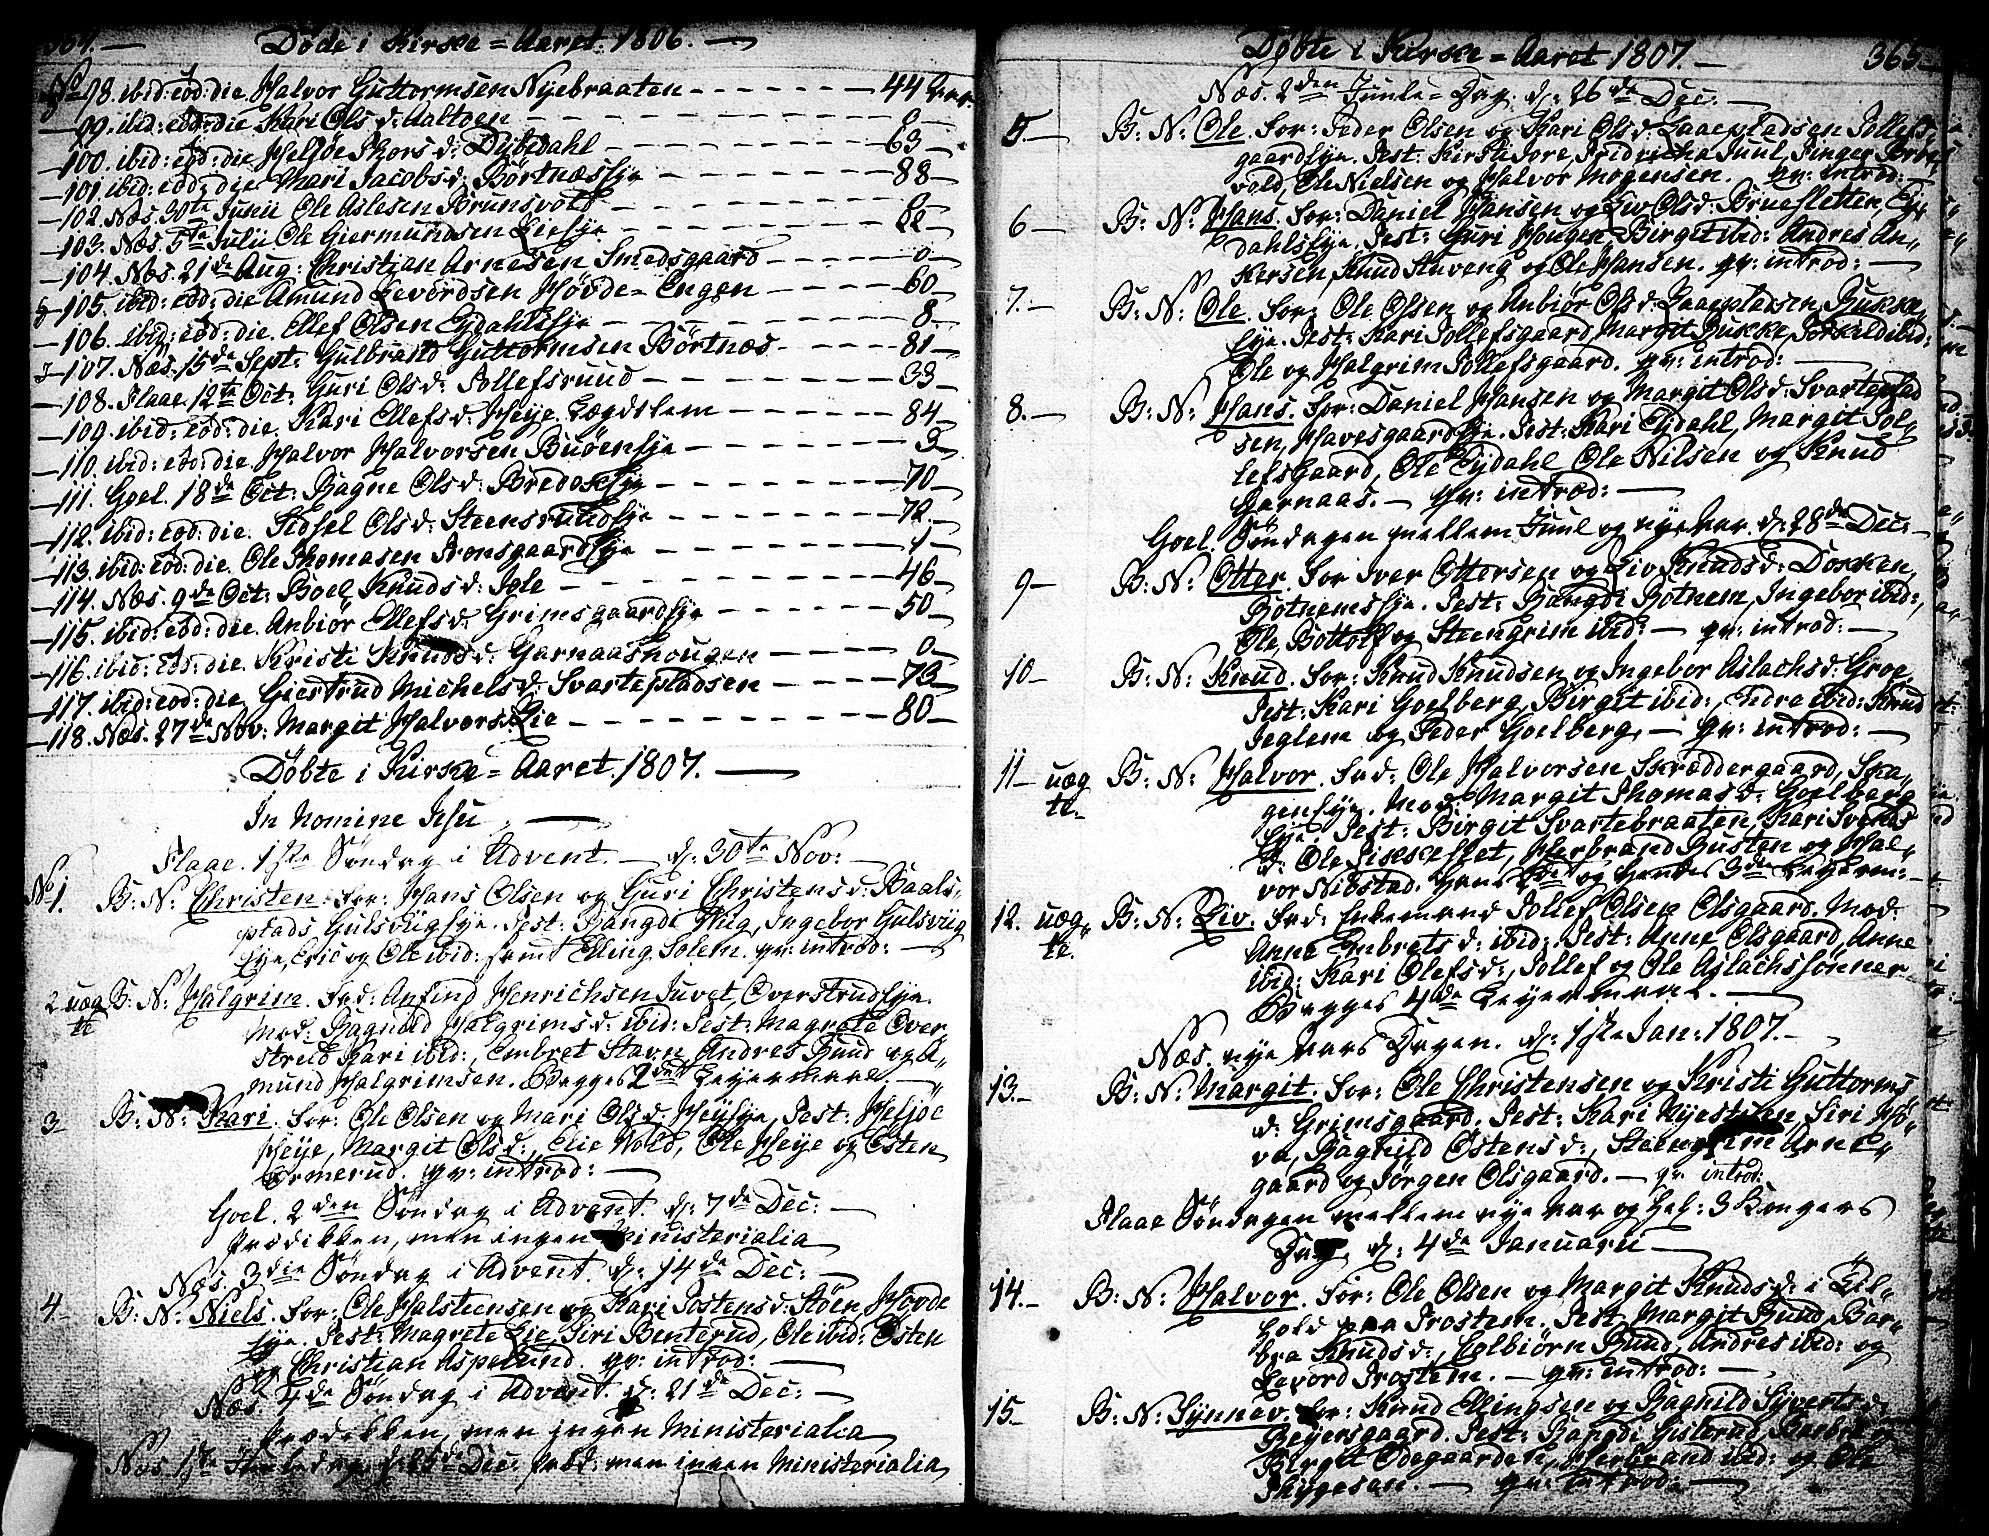 364. —
Døde i Kirke=Aaret 1806. —
No 98. ibid: eod: die Halvor Guttormsen Nyebraaten — 44 Aar
— 99. ibid: eod: die Kari Ols d: Aaltoen — 0 —
— 100. ibid: eod: die Heljøe Thors d: Dybedahl — 63 —
— 101. ibid: eod: die Mari Jacobs d: Børtnæsseye — 88 —
— 102. Næs. 30te Junii Ole Aslesen Brunsvold —
— 103. Næs. 5te Julii Ole Giermundsen Lieeye — 22 —
— 104. Næs. 21de Aug: Christian Arnesen Smedsgaard — 0 —
— 105. ibid: eod: die Amund Levordsen Høvde=Engen — 60 —
— 106. ibid: eod: die. Ellef Olsen Eydahlseye — 8 —
— 107. Næs. 15de Sept: Gulbrand Guttormsen Børtnæs — 81 —
— 108. Flaae. 12te Oct: Guri Ols d: Tollefsruud — 33 —
— 109. ibid: eod: die. Kari Ellefs d: Heye Lægdslem — 84 —
— 110. ibid: eod: die. Halvor Halvorsen Buøeneye — 3 —
— 111. Goel. 18de Oct: Bagne Ols d: Bredoseye — 70 —
— 112. ibid: eod: die. Sidsel Ols d: Steensruudeye — 72 —
— 113. ibid: eod: die. Ole Thomasen Tronsgaardeye — 1 —
— 114. Næs. 9de Oct: Boel Knuds d: Igle — 46 —
— 115. ibid: eod: die. Anbiør Ellefs d: Grimsgaardeye — 50 —
— 116. ibid: eod: die. Kristi Knuds d: Garnaashougen — 0 —
— 117. ibid: eod: die, Giertrud Michels d: Svartepladsen — 73 —
— 118. Næs. 27de Nov: Margit Halvors d: Lie — 80 —
Døbte i Kirke=Aaret 1807. —
In Nomine Jesu —
Flaae. 1ste Søndag i Advent. — d: 30te Nov: —
No 1. B: N: Christen. For: Hans Olsen og Guri Christens d: Baals-
plads Gulsviigeye. Test: Rangdi Wiig, Ingebor Gulsviig
Eye, Eric og Ole ibid: samt Elling Solem. qv: introd: —
2 uæg B: N: Halgrim. Fad: Anfind Henrichsen Juvet, Overstrudeye.
te Mod: Ragnild Halgrims d: ibid: Test: Magrete Over
strud Kari ibid:, Embret Stavn, Andres Ruud og A-
mund Halgrimsen. Begges 2det Leyermaal. —
3 B: N: Kari. For: Ole Olsen og Mari Ols d: Heyeye, Test: Heljøe
Heye, Margit Ols d:, Elie Wold, Ole Heye og Østen
Ormerud. qv: introd: —
Goel. 2den Søndag i Advent. d: 7de Dec: —
Prædikken, men ingen Ministerialia
Næs. 3die Søndag i Advent. d: 14de Dec: —
4 — B: N: Niels. For: Ole Halsteensen og Kari Tostens d: Støen, Høvde
eye. Test: Magrete Lie, Siri Benterud, Ole ibid: Østen
og Christian Aspelund. qv: introd: —
Næs. 4de Søndag i Advent. d: 21de Dec: —
Prædikken, men ingen Ministerialia
Næs. 1ste Juuledag d: 25de Dec: Præd: men ingen Ministerialia
Døbte i Kirke=Aaret 1807. — 365. —
Næs. 2den Juule=Dag. d: 26de Dec: —
5. — B: N: Ole. For: Peder Olsen og Kari Ols d: Haavepladsen Tollefs-
gaardeye. Test: Kirsti Tore, Fridricha Juul, Finger
vold, Ole Nielsen og Halvor Mogensen. qv: introd: —
6 — B: N: Hans. For: Daniel Hansen og Liv Ols d: Brusletten, Ey-
dahlseye. Test: Guri Hougen, Birgit ibid: Andres An-
kersen, Knud Stuveng og Ole Hansen. qv: introd: —
7. — B: N: Ole. For: Ole Olsen og Anbiør Ols d: Haavepladsen, Bukke,
Eye. Test: Kari Tollefsgaard, Margit Bukke, Torkild ibid:
Ole og Halgrim Tollefsgaard. qv: introd: —
8. — B: N: Hans. For: Daniel Hansen og Margit Ols d: Svarteplad
sen, Havesgaardeye. Test: Kari Eydahl, Margit Tol-
lefsgaard, Ole Eydahl, Ole Nilsen og Knud
Garnaas. — qv: introd: —
Goel. Søndagen mellem Juul og nye Aar. d: 28de Dec: —
9 — B: N: Otter. For Iver Ottersen og Liv Knuds d: Dokken,
Botnemseye. Test: Rangdi Botnem, Ingebor ibid:,
Ole, Bottolf og Steengrim ibid: — qv: introd: —
10 — B: N: Knud. For: Knud Knudsen og Ingebor Aslachs d: Groe.
Test: Kari Goelberg, Birgit ibid:, Endre ibid: Knud
Teglem og Peder Goelberg. — qv: introd: —
11 — uæg B: N: Halvor. Fad: Ole Halvorsen Skræddergaard, Ska-
te. geneye. Mod: Margit Thomas d: Goelberg
Eye. Test: Birgit Svartebraaten, Kari Svends
d: Ole Sisselflet, Herbrand Rusten og Hal-
vor Nibstad. Hans 2det og hendes 3de Leyerm: —
12. uæg B: N: Liv. Fad: Enkemand Tollef Olsen Olsgaard. Mod:
te. Anne Embrets d: ibid:. Test: Anne Olsgaard, Anne
ibid: Kari Olefs d:, Tollef og Ole Aslachssønner
Begges 4de Leyermaal. —
Næs. nye Aars Dagen. d: 1ste Jan: 1807. —
13. — B: N: Margit. For: Ole Christensen og Kristi Guttorms
d: Grimsgaard. Test: Kari Nyestuen, Siri Hø-
va, Ragnild Østens d:, Steengrim Arne-
gaard og Jørgen Olsgaard. — qv: introd:
Flaae Søndagen mellem nye Aar og Hel: 3 Kongers
Dag, d: 4de Januarii —
14. — B: N: Halvor. For: Ole Olsen og Margit Knuds d: i Til-
hold paa Trostem. Test: Margit Ruud, Bar-
bra Knuds d:, Eelbiørn Ruud, Andres ibid: og
Levord Trostem. — qv: introd: —
15. — B: N: Synnev. For: Knud Ellingsen og Ragnild Syverts d:
Beyersgaard. Test: Rangdi Gislerud, Barbra og
Birgit Ødegaarden, Herbrand ibid: og Ole
Thygesen. — qv: introd: —